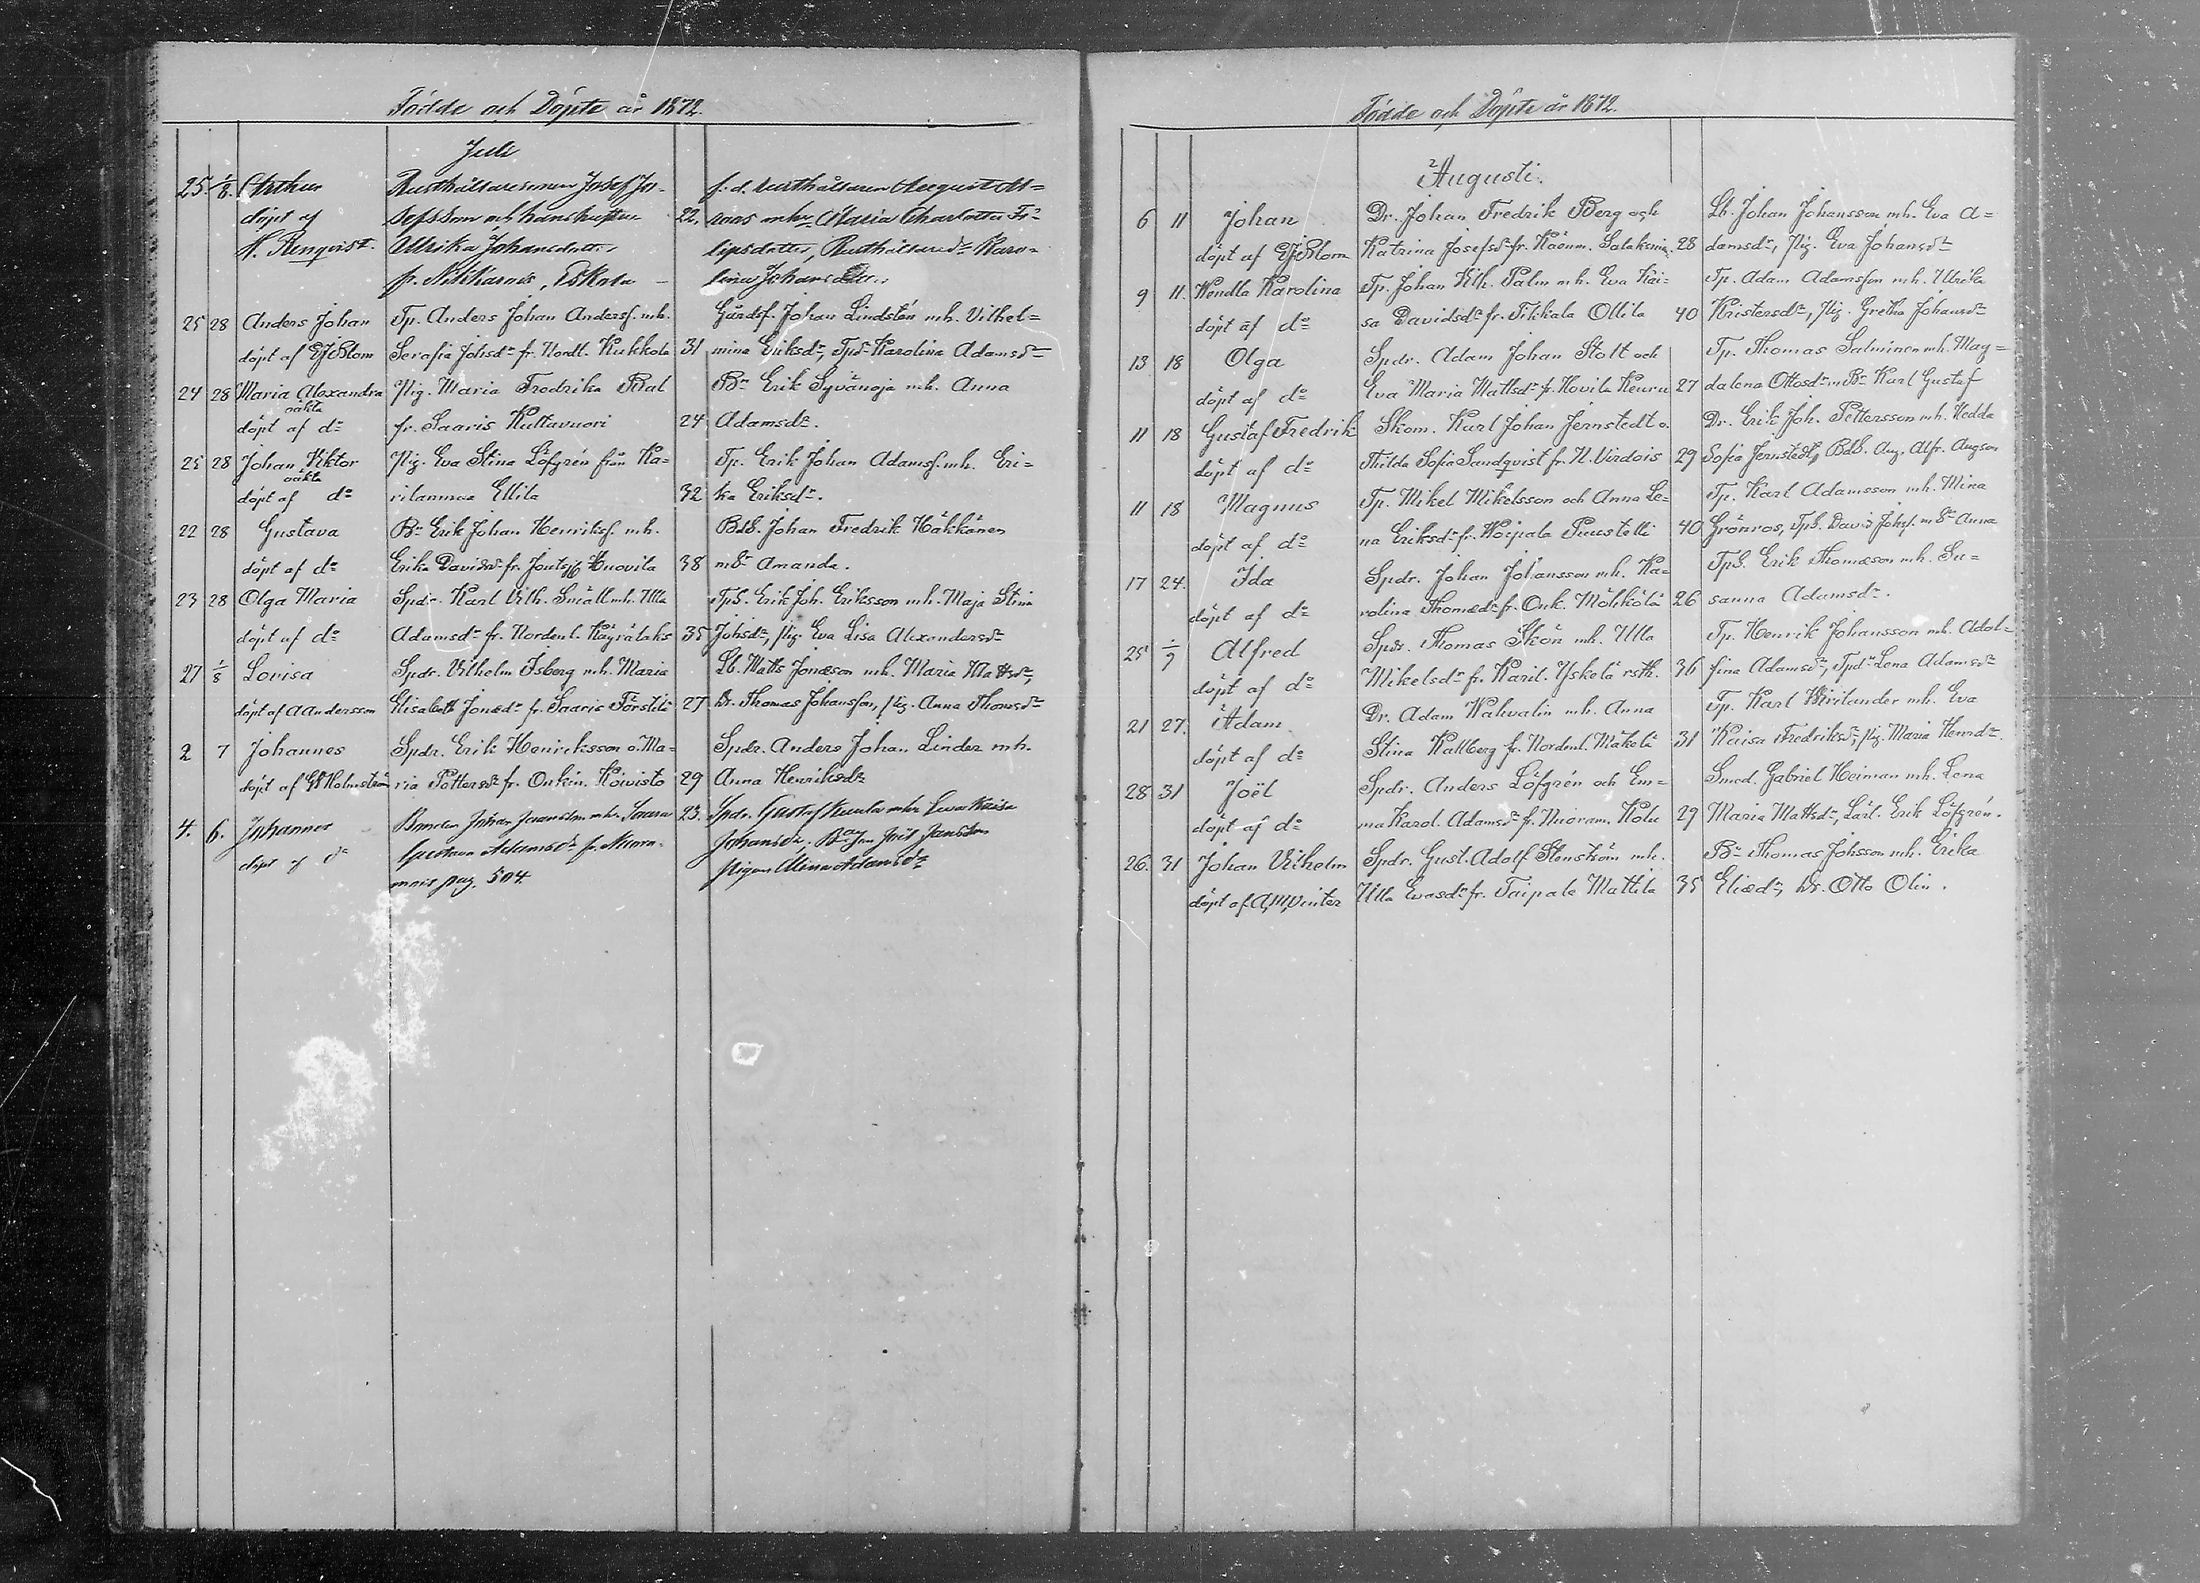 Födde och Döpte år 1872.
Juli
25. 1/8. Arthur Rusthållaresonen Josef Jo- f. d. Rusthållaren August
döpt af sefsson och hans hustru 22. mhu Maria Charlotta Fi-
K. Renqvist. Ulrika Johansdotter lipsdotter, Rusthållared:r Karo-
fr. Nikkarais, Eskola lina Johansdotter.
25 28 Anders Johan Tp. Anders Johan Andersf. mh. Gårdsf. Johan Lindstén mh. Vilhel=
döpt af EJBlom Serafia Johsd:r fr. Nordl. Kukkola 31 mina Eriksd:r, Tpd:r Karolina Adamsd:r
24 28 Maria Alexandra Pig. Maria Fredrika Bal B:n Erik Syvänoja mh. Anna
oäkta
döpt af d:o fr. Saaris Kultavuori 24 Adamsd:r.
25 28 Johan Viktor Pig. Eva Stina Löfgrén från Ka= Tp. Erik Johan Adamsf. mh. Eri=
oäkta
döpt af d:o rilanmaa Ellilä 32 ka Eriksd:r.
22 28 Gustava B:n Erik Johan Henriksf. mh. BdS. Johan Fredrik Häkkänen
döpt af d:o Erika Davidsd:r fr. Huovila 38 m S:r Amanda.
23 28 Olga Maria Spdr. Karl Vilh. Småll mh. Ulla TpS. Erik Joh. Eriksson mh. Maja Stina
döpt af d:o Adamsd:r fr. Nordenl. Käyrälaks 35 Johsd:r, Pig. Eva Lisa Alexandersd:r
27 1/8 Lovisa Spdr. Vilhelm Isberg mh. Maria Lb. Matts Jonæson mh. Maria Mattsd:r,
döpt af AAndersson Elisabeth Jonæd:r fr. Saaris Förstilä 27 Dr. Thomas Johansson, Pig. Anna Thomsd:r
2 7 Johannes Spdr. Erik Henriksson o. Ma= Spdr. Anders Johan Linder mh.
döpt af Holmström ria Pettersd:r fr. Onkin. Koivisto 29 Anna Henriksd:r
4. 6. Johannes Bonden Johan Johansson mhu 23. Spdr. Gustaf mhu Eva Kaisa
döpt af d:o Gustava Adamsd:r fr. Nuora- Johansd:r,
mais pag. 504. pigan Mina Adamsd:r
Födde och Döpte år 1872.
Augusti.
6 11 Johan Dr. Johan Fredrik Berg och Lb. Johan Johansson mh. Eva A=
döpt af EJBlom Katrina Josefsd:r fr. 28 damsd:r, Pig. Eva Johansd:r
9 11. Wendla Karolina Tp. Johan Vilh. Palm mh. Eva Kai= Tp. Adam Adamsson mh. Ulrika
döpt af d:o sa Davidsd:r fr. Tikkala Ollila 40 Kristersd:r, Pig. Gretha Johansd:r
13 18 Olga Spdr. Adam Johan Stolt och Tp. Thomas Salminen mh. Mag=
döpt af d:o Eva Maria Mattsd:r fr. Hovila Keuru 27 dalena Ottosd:r m B:n Karl Gustaf
11 18 Gustaf Fredrik Skom. Karl Johan Jernstedt o. Dr. Erik Joh. Pettersson mh. Hedda
döpt af d:o Thilda Sofia Sandqvist fr. N. Virdois 29 Sofia Jernstedt, BdS. Aug. Alfr. Augson
11 18 Magnus Tp. Mikel Mikelsson och Anna Le= Tp. Karl Adamsson mh. Mina
döpt af d:o na Eriksd:r fr. Woipala Puustelli 40 Grönros, TpS. David Johsf. m S:r Anna
17 24. Ida Spdr. Johan Johansson mh. Ka= TpS. Erik Thomæson mh. Su=
döpt af d:o rolina Thomæd:r fr. Onk. Mölkölä 26 sanna Adamsd:r.
25 1/9 Alfred Spdr. Thomas Skön mh. Ulla Tp. Henrik Johansson mh. Adol=
döpt af d:o Mikelsd:r fr. Karil. Yskelä rsth. 36 fina Adamsd:r, Tpd:r Lena Adamsd:r
21 27. Adam Dr. Adam Wahvalin mh. Anna Tp. Karl Wirilander mh. Eva
döpt af d:o Stina Hallberg fr. Nordenl. Mäkelä 31 Kaisa Fredriksd:r, Pig. Maria Henrd:r.
28 31 Joël Spdr. Anders Löfgrén och Em= Smed. Gabriel Heiman mh. Lena
döpt af d:o ma Karol. Adamsd:r fr. Nuoram. Kolu 29 Maria Mattsd:r, Lärl. Erik Löfgrén.
26. 31 Johan Vilhelm Spdr. Gust. Adolf Stenström mh. B:n Thomas Johsson mh. Erika
döpt af Winter Ulla Evasd:r fr. Taipale Mattila 35 Eliæd:r, Dr. Otto Olin.